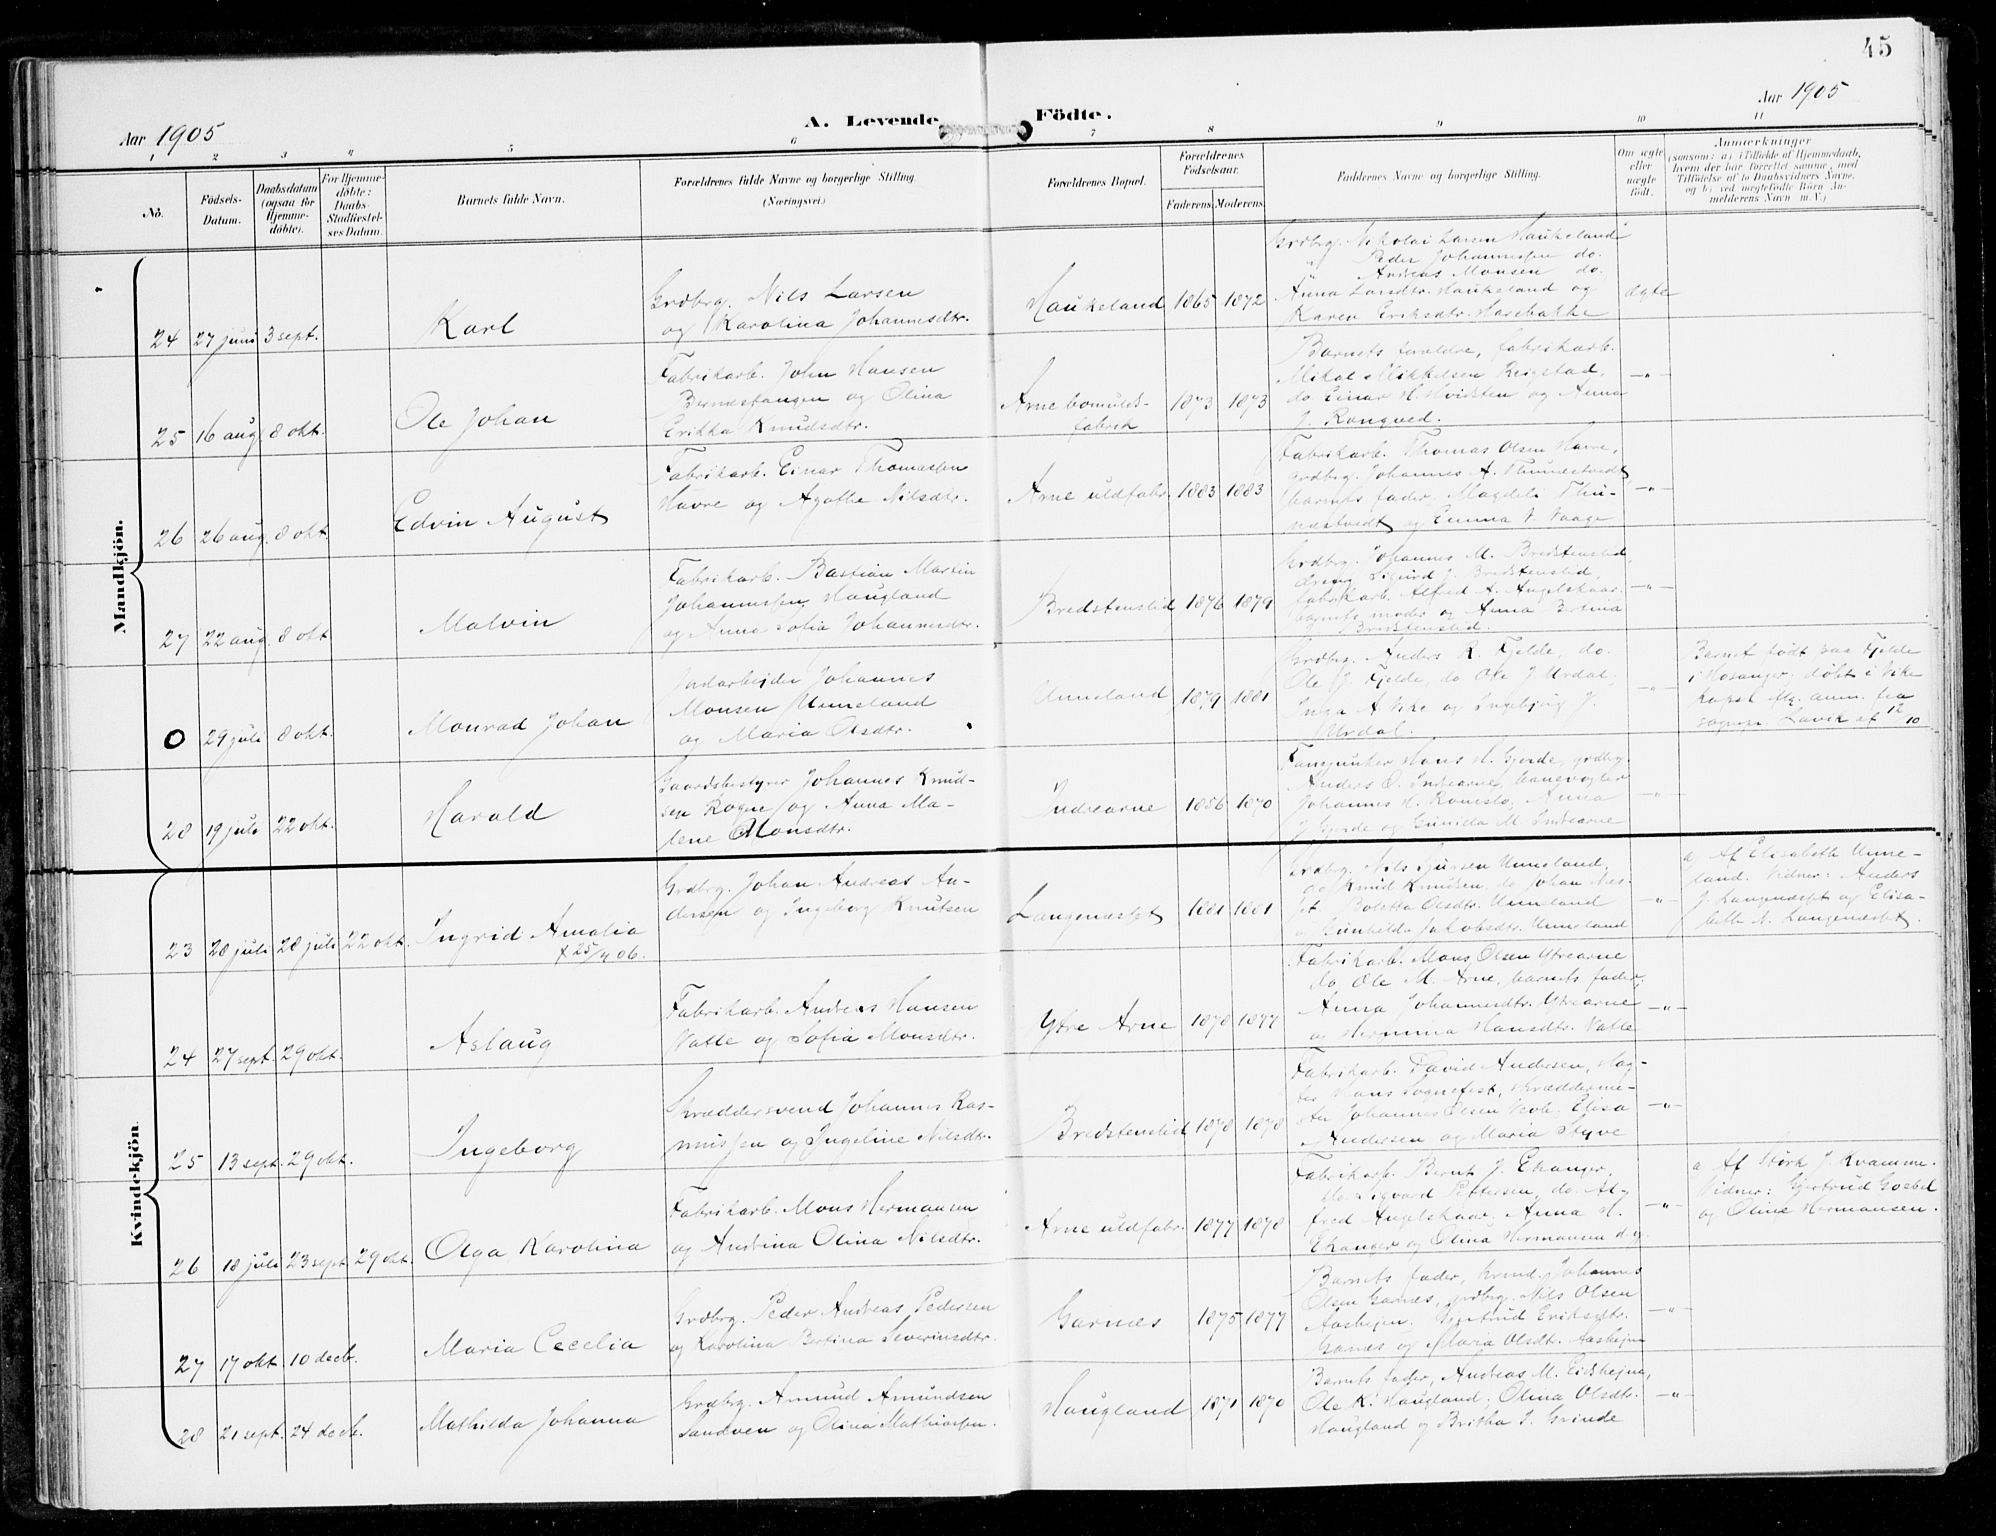 45
Aar 1905
A. Levende Födte.
Aar 1905
1 2 3 4 5 6 7 8 9 10 11
No.
Födsels-
Datum.
Daabsdatum
(ogsaa for
Hjemme-
döbte).
For Hjemme-
döbte:
Daabs-
Stadfæstel-
ses Datum.
Barnets fulde Navn.
Forældrenes fulde Navne og borgerlige Stilling.
(Næringsvei.)
Forældrenes Bopæl.
Forældrenes
Födselsaar.
Faderens. Moderens.
Faddernes Navne og borgerlige Stilling.
Om ægte
eller
uægte
født.
Anmærkninger
(saasom: a) i Tilfælde af Hjemmedaab,
hvem der har forrettet samme, med
Tilføielse af to Daabsvidners Navne,
og b) ved uægtefødte Börn An-
melderens Navn m.V.)
Mandkjön.
24 27 juni 3 sept.
Karl
Grdbrg. Nils Larsen
og Karolina Johannesdtr.
Haukeland 1865 1872
Grdbrg. Nikolai Larsen Haukeland
" Peder Johannessen do.
" Andreas Monsen do.
Anna Larsdtr. Haukeland og
Karen Eriksdtr. Hasebakke
ægte
25 16 aug 8 okt.
Ole Johan
Fabrikarb. John Hansen
Bernæstangen og Olina
Erikka Knudsdtr.
Arne bomulds-
fabrik
1873 1873
Barnets forældre, fabrikarb.
Mikal Mikkelsen Reigstad,
do Einar H. Hvidsten og Anna
J. Rongved.
—"—
26 26 aug. 8 okt.
Edvin August
Fabrikarb. Einar Thomassen
Havre og Agathe Nilsdtr.
Arne uldfabr. 1883 1883
Fabrikarb. Thomas Olsen Havre,
grdbrg. Johannes A. Thunestvedt
barnets fader, Magdeli Thu-
nestvedt og Emma V. Vaage
—"—
27 22 aug. 8 okt
Malvin
Fabrikarb. Bastian Martin
Johannessen Haugland
og Anna Sofia Johannesdtr.
Bredstenslid 1876 1879
Grdbrg. Johannes M. Bredstenslid,
dreng Sigurd J. Bredstenslid,
fabrikarb. Alfred A. Angelskaar,
barnets moder og Anna Bertina
Bredstenslid.
—"—
0 29 juli 8 okt.
Monrad Johan
Jordarbeider Johannes
Monsen Unneland
og Maria Olsdtr.
Unneland 1879 1881
Grdbrg. Anders R. Fjelde, do.
Ole J. Fjelde, do Ole J. Urdal,
Inga A Vike og Ingebjørg J.
Urdal.
—"—
Barnet født paa Fjelde
i Hosanger, døbt i Vike
kapel flg. anm. fra
sognepr. Lavik af 12/10
28 19 juli 22 okt.
Harald
Gaardsbestyrer Johannes Knud-
sen Rogne og Anna Ma-
lene Monsdtr.
Indrearne 1856 1870
Fanejunker Hans H. Gjerde, grdbrg.
Anders O. Indrearne, banevogter
Johannes H. Romslo, Anna
J. Gjerde og Gunilda M. Indrearne
—"—
Kvindekjön.
23 28 juli 28 juli 22 okt.
Ingrid Amalia
+ 25/4 06.
Grdbrg. Johan Andreas An-
dersen og Ingeborg Knutsen
Langenæstet 1881 1881
Grdbrg. Nils Sjursen Unneland,
do Knud Knudsen, do Johan Næs-
set. Boletta Olsdtr. Unneland
og Gunhilda Jakobsdtr. Unneland
—"—
a Af Elisabeth Unne-
land. Vidner: Anders
J. Langenæset og Elisa-
beth N. Langenæset.
24 27 sept. 29 okt.
Aslaug
Fabrikarb. Andreas Hansen
Valle og Sofia Monsdtr.
Ytre Arne 1878 1877
Fabrikarb. Mons Olsen Ytrearne
do Ole M. Arne, barnets fader,
Anna Johannesdtr. Ytrearne
og Hermina Hansdtr. Valle
—"—
25 13 sept. 29 okt.
Ingeborg
Skræddersvend Johannes Ras-
mussen og Ingeline Nilsdtr.
Bredstenslid 1878 1878
Fabrikarb. David Andersen, Mag-
Hans Sognefest, skrædderme-
ster Johannes Olsen Elisa
Andersen og Maria Styve
—"—
26 18 juli 23 sept. 29 okt.
Olga Karolina
Fabrikarb. Mons Hermansen
og Antrina Olina Nilsdtr.
Arne uldfabr. 1877 1878
Fabrikarb. Bernt J. Ekanger,
do. Sigvard Pettersen, do. Al-
fred Angelskaar, Anna H.
Ekanger og Olina Hermansen d.y.
—"—
a Af Størk J. Kvamme.
Vidner: Gjertrud Goebel
og Oline Hermansen.
27 17 okt 10 decb.
Maria Cecelia
Grdbrg. Peder Andreas Pedersen
og Karolina Bertina Severinsdtr.
Garnæs 1875 1877
Barnets fader, Johannes
Olsen Garnæs, grdbrg. Nils Olsen
Aashejm. Gjertrud Eriksdtr.
Garnæs og Maria Olsdtr. Aashejm
—"—
28 21 sept. 24 decb.
Mathilda Johanna
Grdbrg. Amund Amundsen
Sandven og Olina Mathiassen.
Haugland 1871 1870
Barnets fader, Andreas M. Eidshejm,
Ole K. Haugland, Olina Olsdtr.
Haugland og Britha J. Grinde
—"—